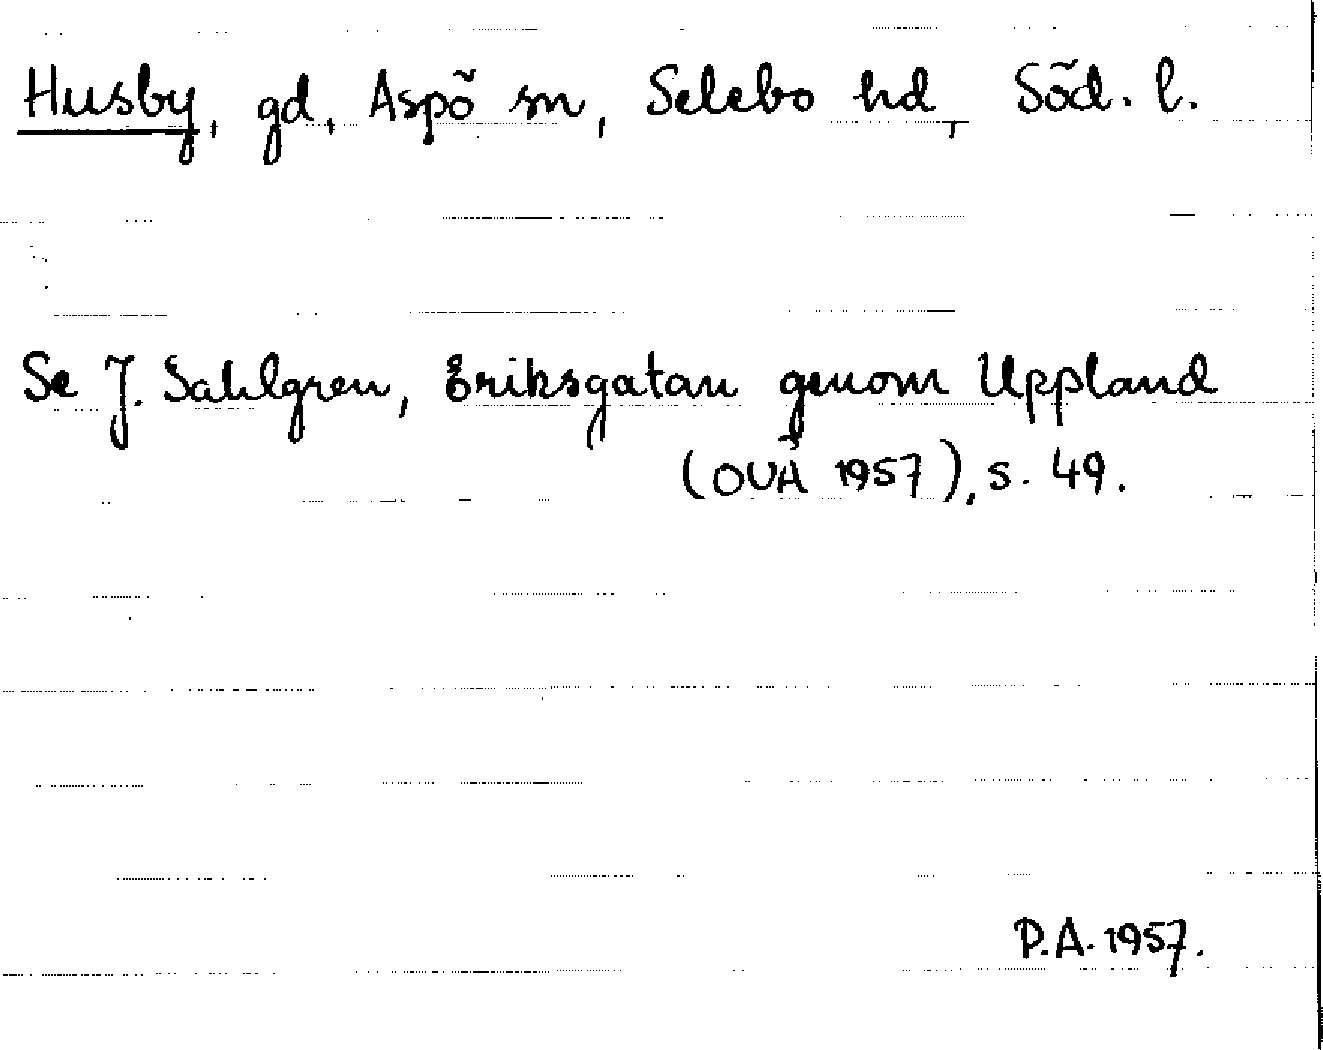 Husby, gd, Aspö sn, Selebo hd, Söd. l.
Se J. Sahlgren, Eriksgatan genom Uppland
(OUÅ 1957), s. 49.
P.A. 1957.